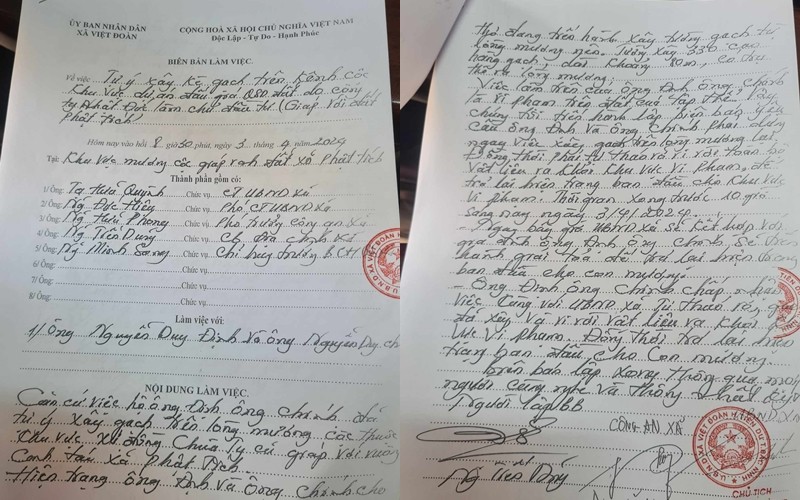 ỦY BAN NHÂN DÂN
XÃ VIỆT ĐOÀN
CỘNG HOÀ XÃ HỘI CHỦ NGHĨA VIỆT NAM
Độc Lập - Tự Do - Hạnh Phúc
BIÊN BẢN LÀM VIỆC.
Về việc: Tự ý xây kè gạch trên kênh cốc
Khu vực dự án đấu giá QSD đất do công
ty Đhất Đức làm chủ đầu tư (Giáp với đất
Phật tích)
Hôm nay vào hồi 8 giờ 30 phút, ngày 3 tháng 4 năm 2024
Tại: Khu vực mương cốc giáp ranh đất xã Phật tích
Thành phần gồm có:
1/ Ông Tạ Hữu Quỳnh Chức vụ CT UBND xã
2/ Ông Ng Đức Hiếu Chức vụ Phó CT UBND xã
3/ Ông Ng Hữu Phong Chức vụ Phó trưởng công an xã
4/ Ông Ng Tiến Dũng Chức vụ CB Địa chính xã
5/ Ông Ng Minh Sang Chức vụ Chỉ huy trưởng BCH
6/ Ông Chức vụ
7/ Ông Chức vụ
8/ Ông Chức vụ
Làm việc với:
1/ Ông Nguyễn Duy Định và ông Nguyễn Duy
NỘI DUNG LÀM VIỆC.
Căn cứ việc hộ ông Định ông Chính đã
tự ý xây gạch trên lòng mương cốc thuộc
Khu vực xứ đồng giáp với
xã Phật Tích.
Hiện trạng ông Định và ông Chính cho
thợ đang tiến hành xây tường gạch từ
lòng mương nên. Tường xây 330 cao
hàng gạch, dài khoảng 10m, có trụ
lòng mương.
Việc làm trên của ông Định ông Chính
là vi phạm trên đất của tập thể. Vậy
chúng tôi tiến hành lập biên bản yêu
cầu ông Định và ông Chính phải dừng
ngay việc xây gạch trên lòng mương lại
Đồng thời phải tự tháo rỡ và rời toàn bộ
vật liệu ra khỏi khu vực vi phạm, để
trả lại hiện trạng ban đầu cho khu vực
vi phạm. Thời gian xong trước 10 giờ
sáng nay ngày 3/4/2024.
Ngay bây giờ UBND xã sẽ kết hợp với
gia đình ông Định ông Chính, sẽ tiến
hành giải tỏa để trả lại hiện trạng
ban đầu cho con mương.
- Ông Định ông Chính chấp nhận
việc cùng với UBND xã tự tháo rỡ gạch
đã xây và rời vật liệu ra khỏi khu
vực vi phạm. Đồng thời trả lại hiện
trạng ban đầu cho con mương.
Biên bản lập xong thông qua mọi
người cùng nghe và thống nhất
Người lập BB
CÔNG AN XÃ
UBND xã
CHỦ TỊCH
Ng Tiến Dũng
U.B.N.D XÃ VIỆT ĐOÀN H.TIÊN DU T.BẮC NINH